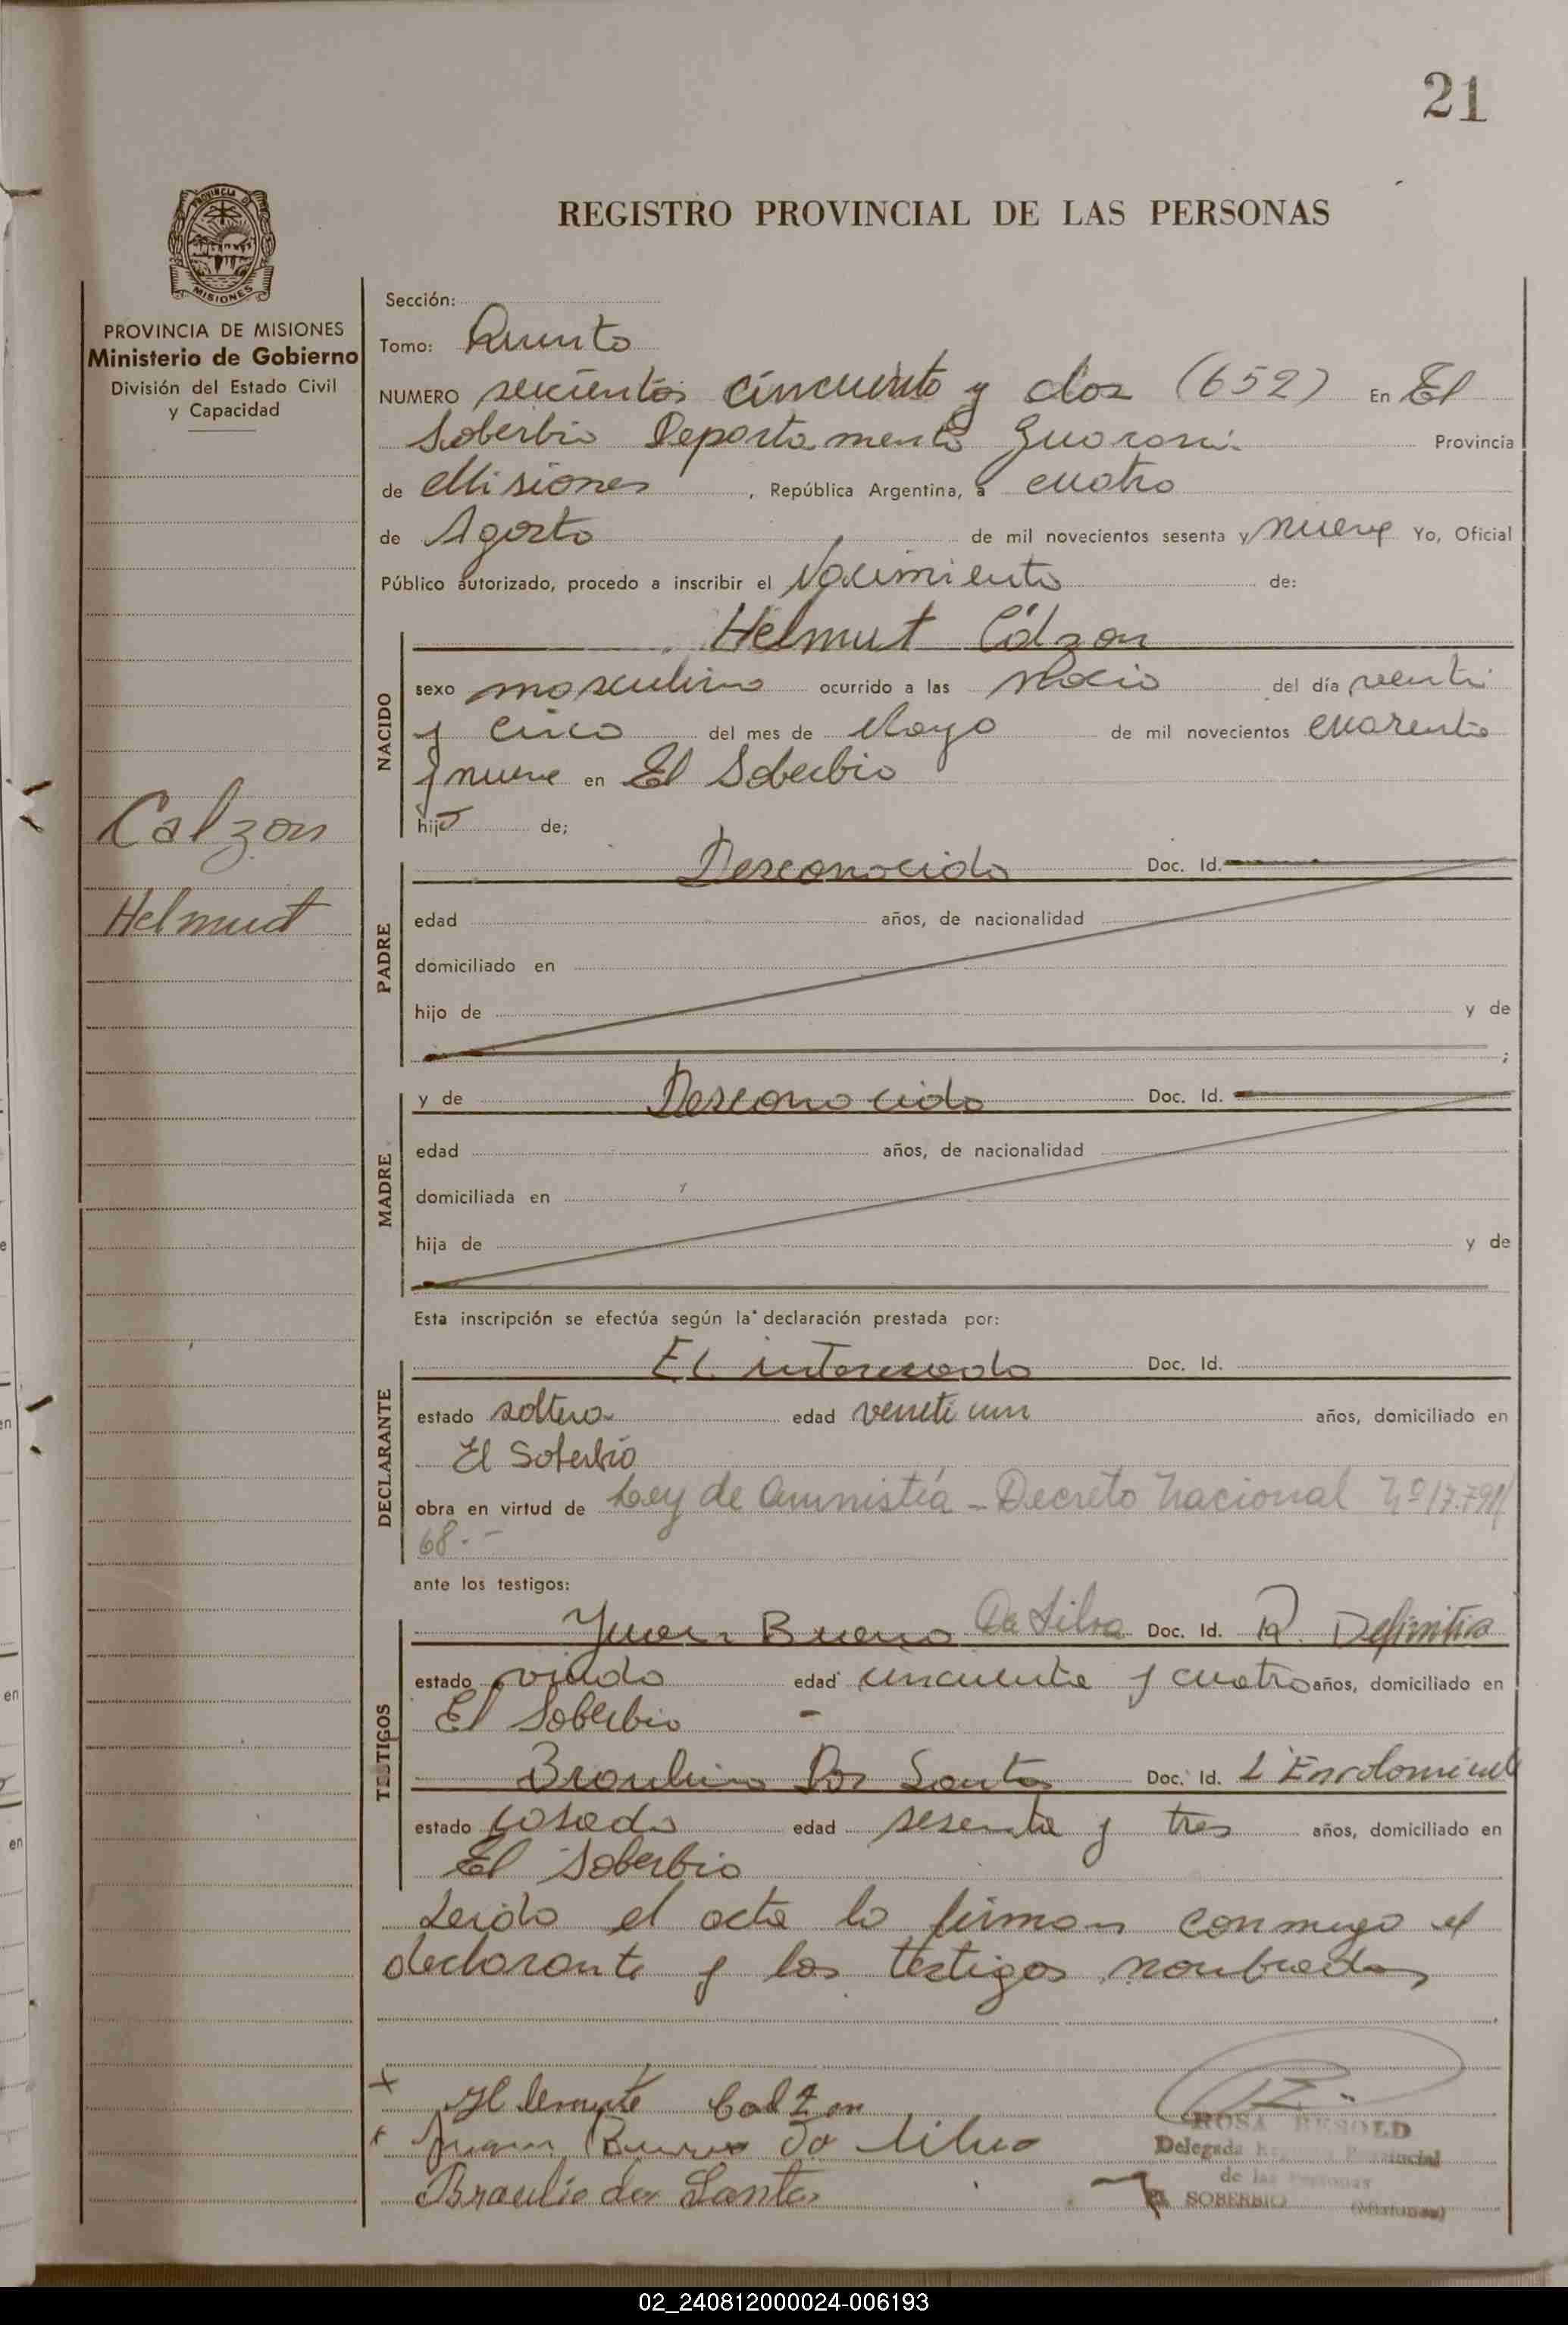 21
PROVINCIA DE
MISIONES
REGISTRO PROVINCIAL DE LAS PERSONAS
PROVINCIA DE MISIONES
Ministerio de Gobierno
División del Estado Civil
y Capacidad
Calzon
Helmut
Sección:
Tomo: Quinto
NUMERO seicientos cincuenta y dos (652) En El
Soberbio Departamento Guarani Provincia
de Misiones, República Argentina, a cuatro
de Agosto de mil novecientos sesenta y nueve Yo, Oficial
Público autorizado, procedo a inscribir el Nacimiento de:
Helmut Cálzon
NACIDO
sexo masculino ocurrido a las del día venti
y cinco del mes de Mayo de mil novecientos cuarenta
y nueve en El Soberbio
hijo de;
PADRE
Desconocido Doc. Id.
edad años, de nacionalidad
domiciliado en
hijo de y de
;
MADRE
y de Desconocido Doc. Id.
edad años, de nacionalidad
domiciliada en
hija de y de
Esta inscripción se efectúa según la declaración prestada por:
DECLARANTE
El Doc. Id.
estado soltero edad años, domiciliado en
El Soberbio
obra en virtud de Ley de Amnistía - Decreto Nacional Nº 17.791/
68.-
ante los testigos:
TESTIGOS
Juan Bueno Da Silva Doc. Id. Definitiva
estado viudo edad cincuenta y cuatro años, domiciliado en
El Soberbio -
Dos Santos Doc. Id. L Enrolamient
estado casado edad sesenta y tres años, domiciliado en
El Soberbio
Leida el acta la firman conmigo el
declarante y los testigos nombrados
x Calzon
x Juan Bueno Da Silva
Braulio dos Santos
ROSA BESOLD
Delegada Provincial
de las Personas
EL SOBERBIO (Misiones)
en
en
en
02_240812000024-006193